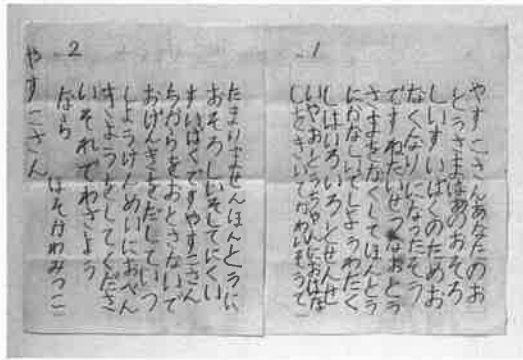 1
やすこさんあなたのお
とうさまはあのおそろ
しいすいばくのためお
なくなりになったそう
ですねたいせつなおとう
さまをなくしてほんとう
にかなしいでしょうわたく
しはいろいろとせんせ
いやおとうちゃんにおはな
しをきいてかわいそうで
2
たまりませんほんとうに
おそろしいそしてにくい
すいばくですやすこさん
ちからをおとさないで
おげんきをだしていつ
しょうけんめいにおべん
きょうをしてくださ
いそれではさよう
なら
ほそかわみつこ
やすこさん